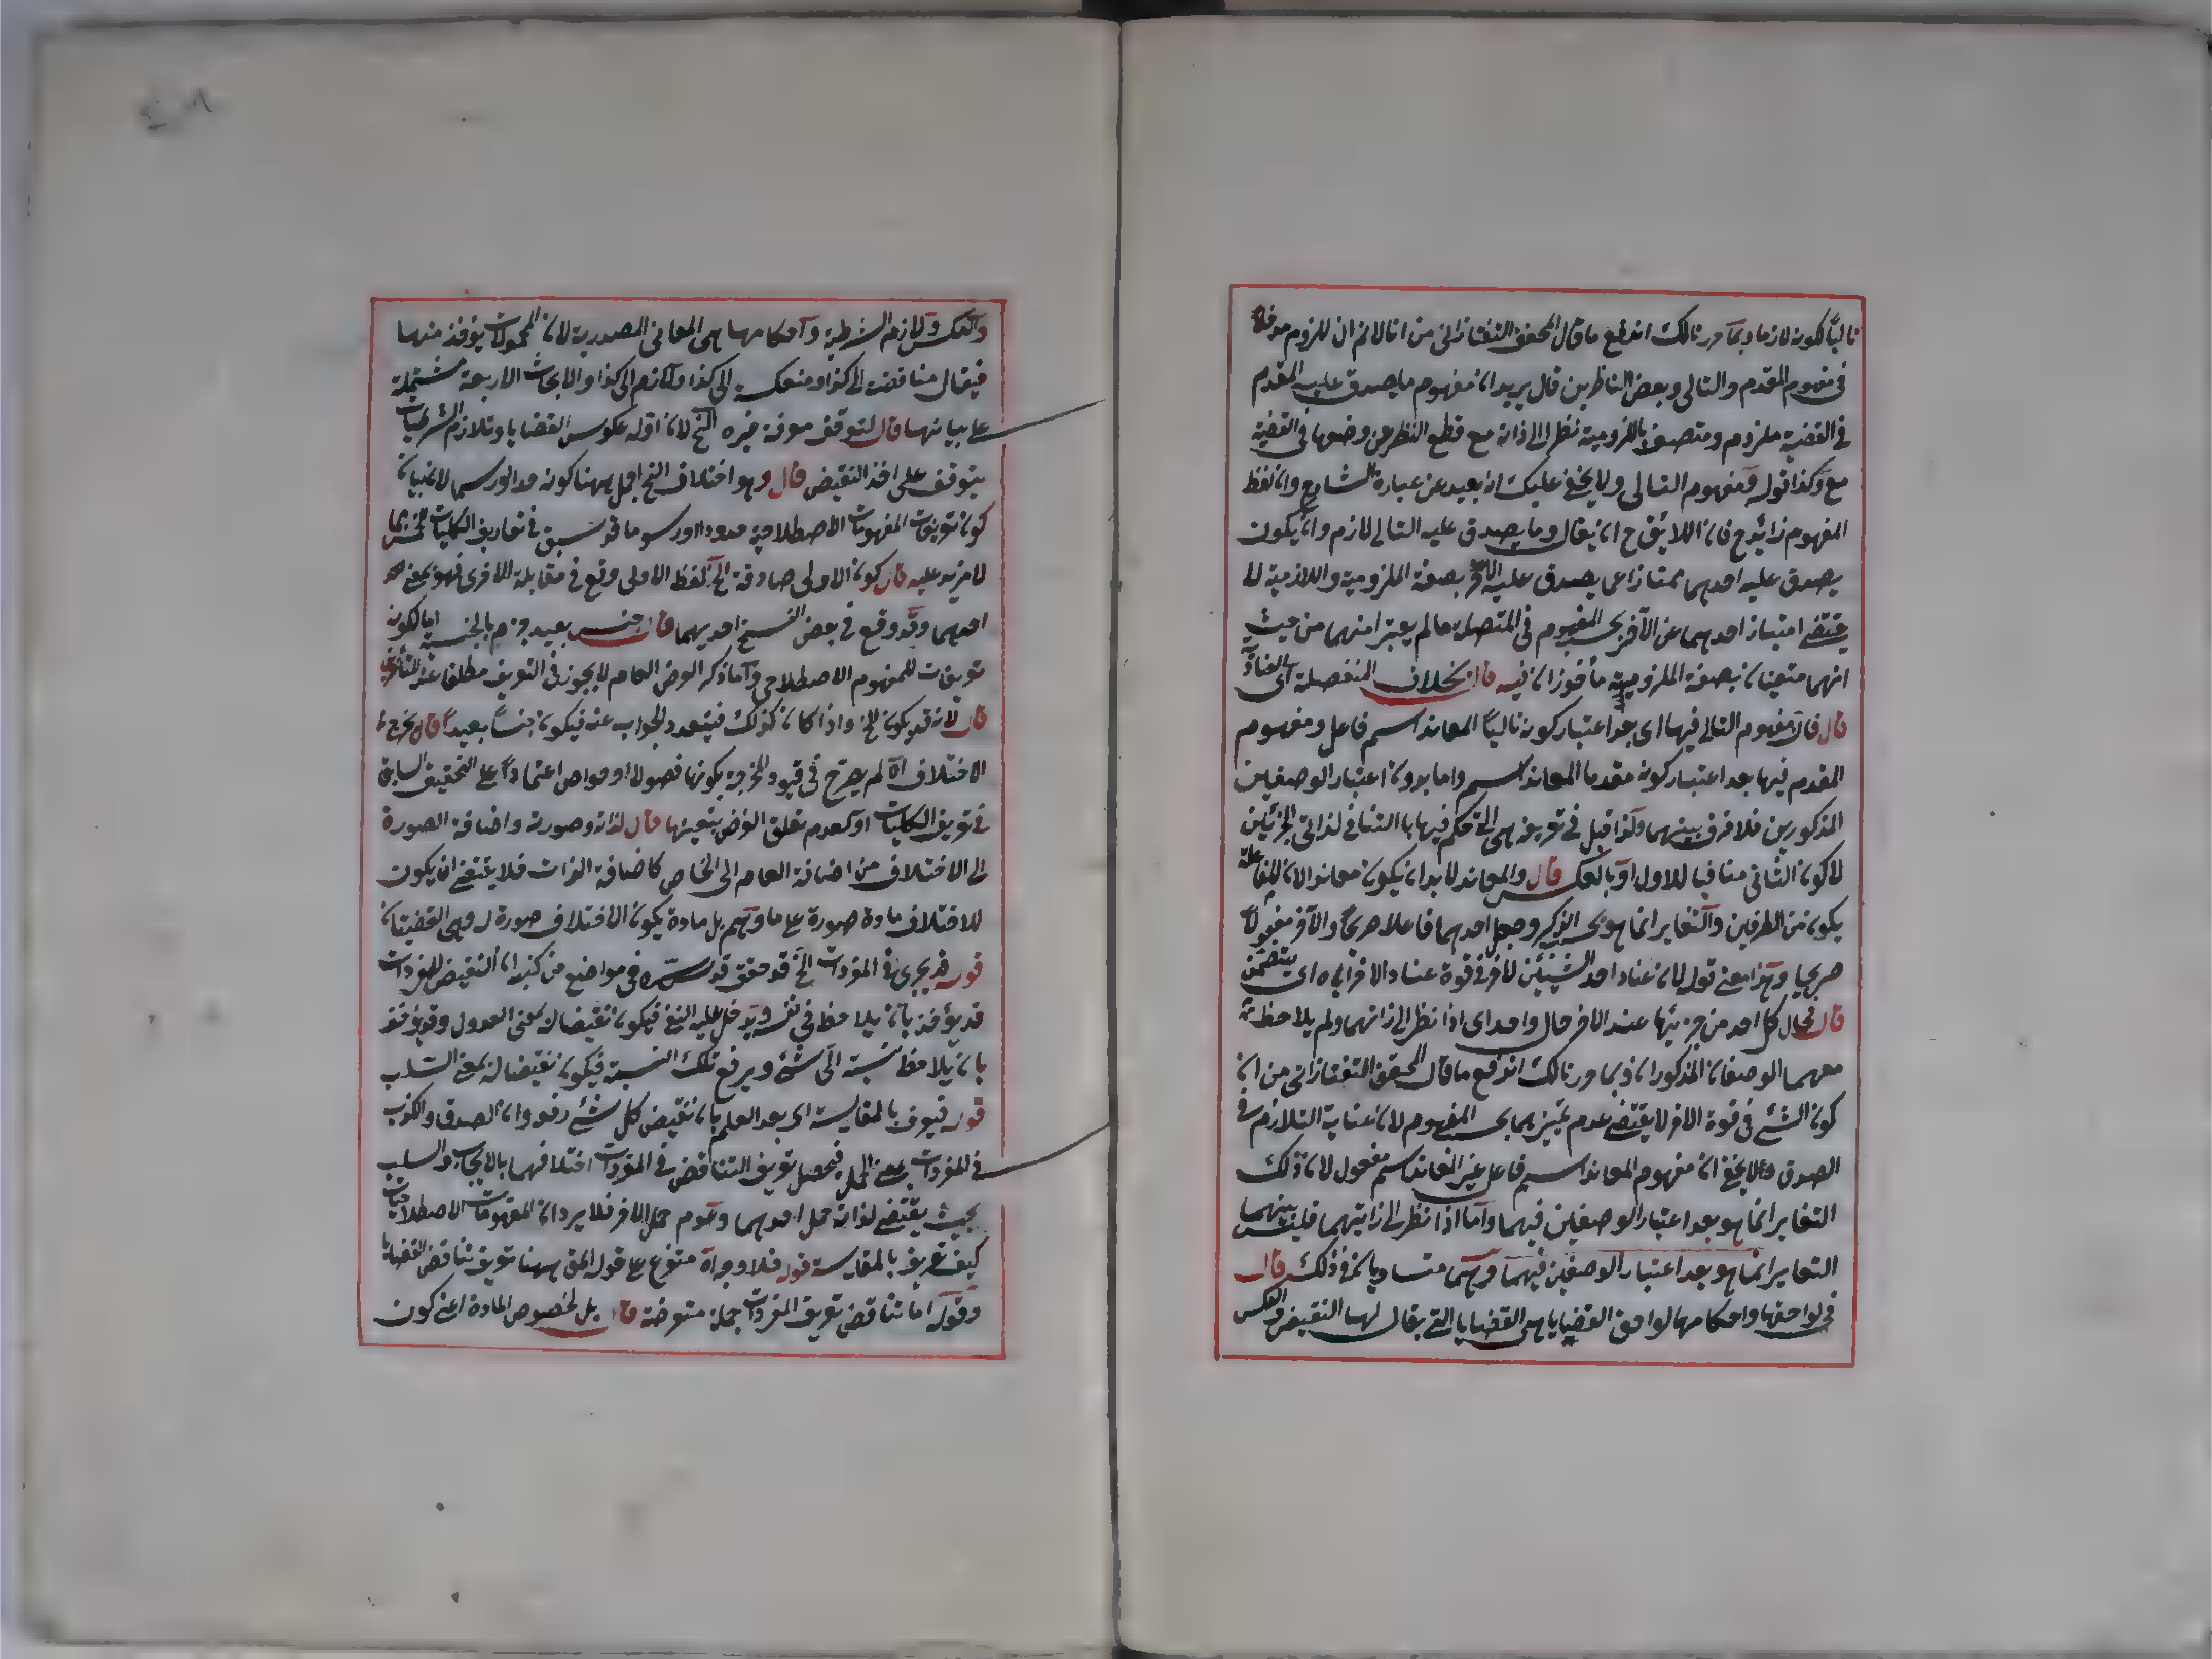 تاليًا لكونه لازما وبما حررنا لك اندفع ما قال المحقق التفتازانى من انا لا نم ان للزوم مدخلا
فى مفهوم المقدم والتالى وبعض الناظرين قال يريد ان مفهوم ما يصدق عليه المقدم
فى القضية ملزوم ومتصف باللزومية نظرا الى ذاته مع قطع النظر عن وضعها فى القضية
مع وكذا قوله ومفهوم التالى ولا يخفى عليك انه بعيد عن عبارة الشارح وان لفظ
المفهوم زائد ح فان اللائق ح ان يقال وما يصدق عليه التالى لازم وان يكون
يصدق عليه احدهما ممتازا عما يصدق عليه الآخر بصفة الملزومية واللازمية لا
يقتضى امتياز احدهما عن الآخر بحسب المفهوم فى المتصلة ما لم يعتبر امنهما من حيث
انهما متعينان بصفة الملزومية مأخوذان فيه قال بخلاف المنفصلة اى العنادية
قال فان مفهوم التالى فيها اى بعد اعتبار كونه تاليًا المعاند اسم فاعل ومفهوم
المقدم فيها بعد اعتبار كونه مقدما المعاند اسم واما بدون اعتبار الوصفين
المذكورين فلا فرق بينهما ولذا قيل فى تعريفه هى التى حكم فيها بالتنافى لذاتى الجزئين
لا كون الثانى منافيا للاول او بالعكس قال والمعاند لا بد ان يكون معاندا لان المفاعلة
يكون من الطرفين والتغاير انما هو بحسب الذكر وجعل احدهما فاعلا صريحًا والآخر مفعولًا
صريحا وهذا معنى قوله لان عناد احد الشيئين للآخر فى قوة عناد الآخر اياه اى يتضمن
قال فحال كل احد من جزئيها عند الآخر حال واحد اى اذا نظر الى ذاتهما ولم يلاحظ
معهما الوصفان المذكوران وبما حررنا لك اندفع ما قال المحقق التفتازانى من ان
كون الشئ فى قوة الآخر لا يقتضى عدم تميزهما بحسب المفهوم لان غاية التلازم فى
الصدق ولا يخفى ان مفهوم المعاند اسم فاعل غير المعاند اسم مفعول لان ذلك
التغاير انما هو بعد اعتبار الوصفين فيهما واما اذا نظر الى ذاتيهما فليس بينهما
التغاير انما هو بعد اعتبار الوصفين فيهما وهما متساويان فى ذلك قال
فى لواحقها واحكامها لواحق القضايا هى القضايا التى يقال لها النقيض والعكس
والعكس ولازم الشرطية واحكامها هى المعانى المصدرية لان المحمولات يؤخذ منها
فيقال مناقضة الى كذا ومنعكسة الى كذا ولازم الى كذا والابحاث الاربعة مشتملة
على بيانها قال لتوقف معرفة غيره الخ لان ادلة عكوس القضايا وتلازم الشرطيات
يتوقف على اخذ النقيض قال وهو اختلاف الخ اجمل ههنا كونه حدا او رسما لان بيان
كون تعريفات المفهومات الاصطلاحية حدودا او رسوما قد سبق فى تعاريف الكليات الخمس بما
لا مزيد عليه قال كون الاولى صادقة الخ لفظ الاولى وقع فى مقابلة الاخرى فهو بمعنى
احدهما وقد وقع فى بعض النسخ احديهما قال جنس بعيد جزم بالجنسية اما لكونه
تعريفات للمفهوم الاصطلاحى واما ذكر العرض العام لا يجوز فى التعريف مطلقا عند المتأخرين
قال لانه قد يكون الخ واذا كان كذلك فيتعدد الجواب عنه فيكون جنسًا بعيدًا قال يخرج
الاختلاف اه لم يصرح فى قيود المخرجة بكونها فصولا او خواص اعتمادًا على التحقيق السابق
فى تعريف الكليات او لعدم تعلق الغرض بتعينها قال لذاته وصورته واضافة الصورة
الى الاختلاف من اضافة العام الى الخاص كاضافة الذات فلا يقتضى ان يكون
للاختلاف مادة صورة على ما وهم بل مادة يكون الاختلاف صورة له وهى القضيتان
قوله قد يجرى فى المفردات الخ قد حقق قدس سره فى مواضع من كتبه ان النقيض للمفردات
قد يؤخذ بان يلاحظ فى نفسه ويدخل عليه النفى فيكون نقيضا له بمعنى العدول وقد يؤخذ
بان يلاحظ نسبته الى شئ ويرفع تلك النسبة فيكون نقيضا له بمعنى السلب
قوله فيعرف بالمقايسة اى بعد العلم بان نقيض كل شئ رفعه وان الصدق والكذب
فى المفردات بمعنى الحمل فيحصل تعريف التناقض فى المفردات اختلافهما بالايجاب والسلب
بحيث يقتضى لذاته حمل احدهما وعدم حمل الآخر فلا يرد ان المفهومات الاصطلاحيات
كيف تعرف بالمقايسة قوله فلا وجه اه متفرع على قوله المق ههنا تعريف تناقض القضايا
وقوله اما تناقض تعريف المفردات جملة معترضة قال بل لخصوص المادة اعنى كون